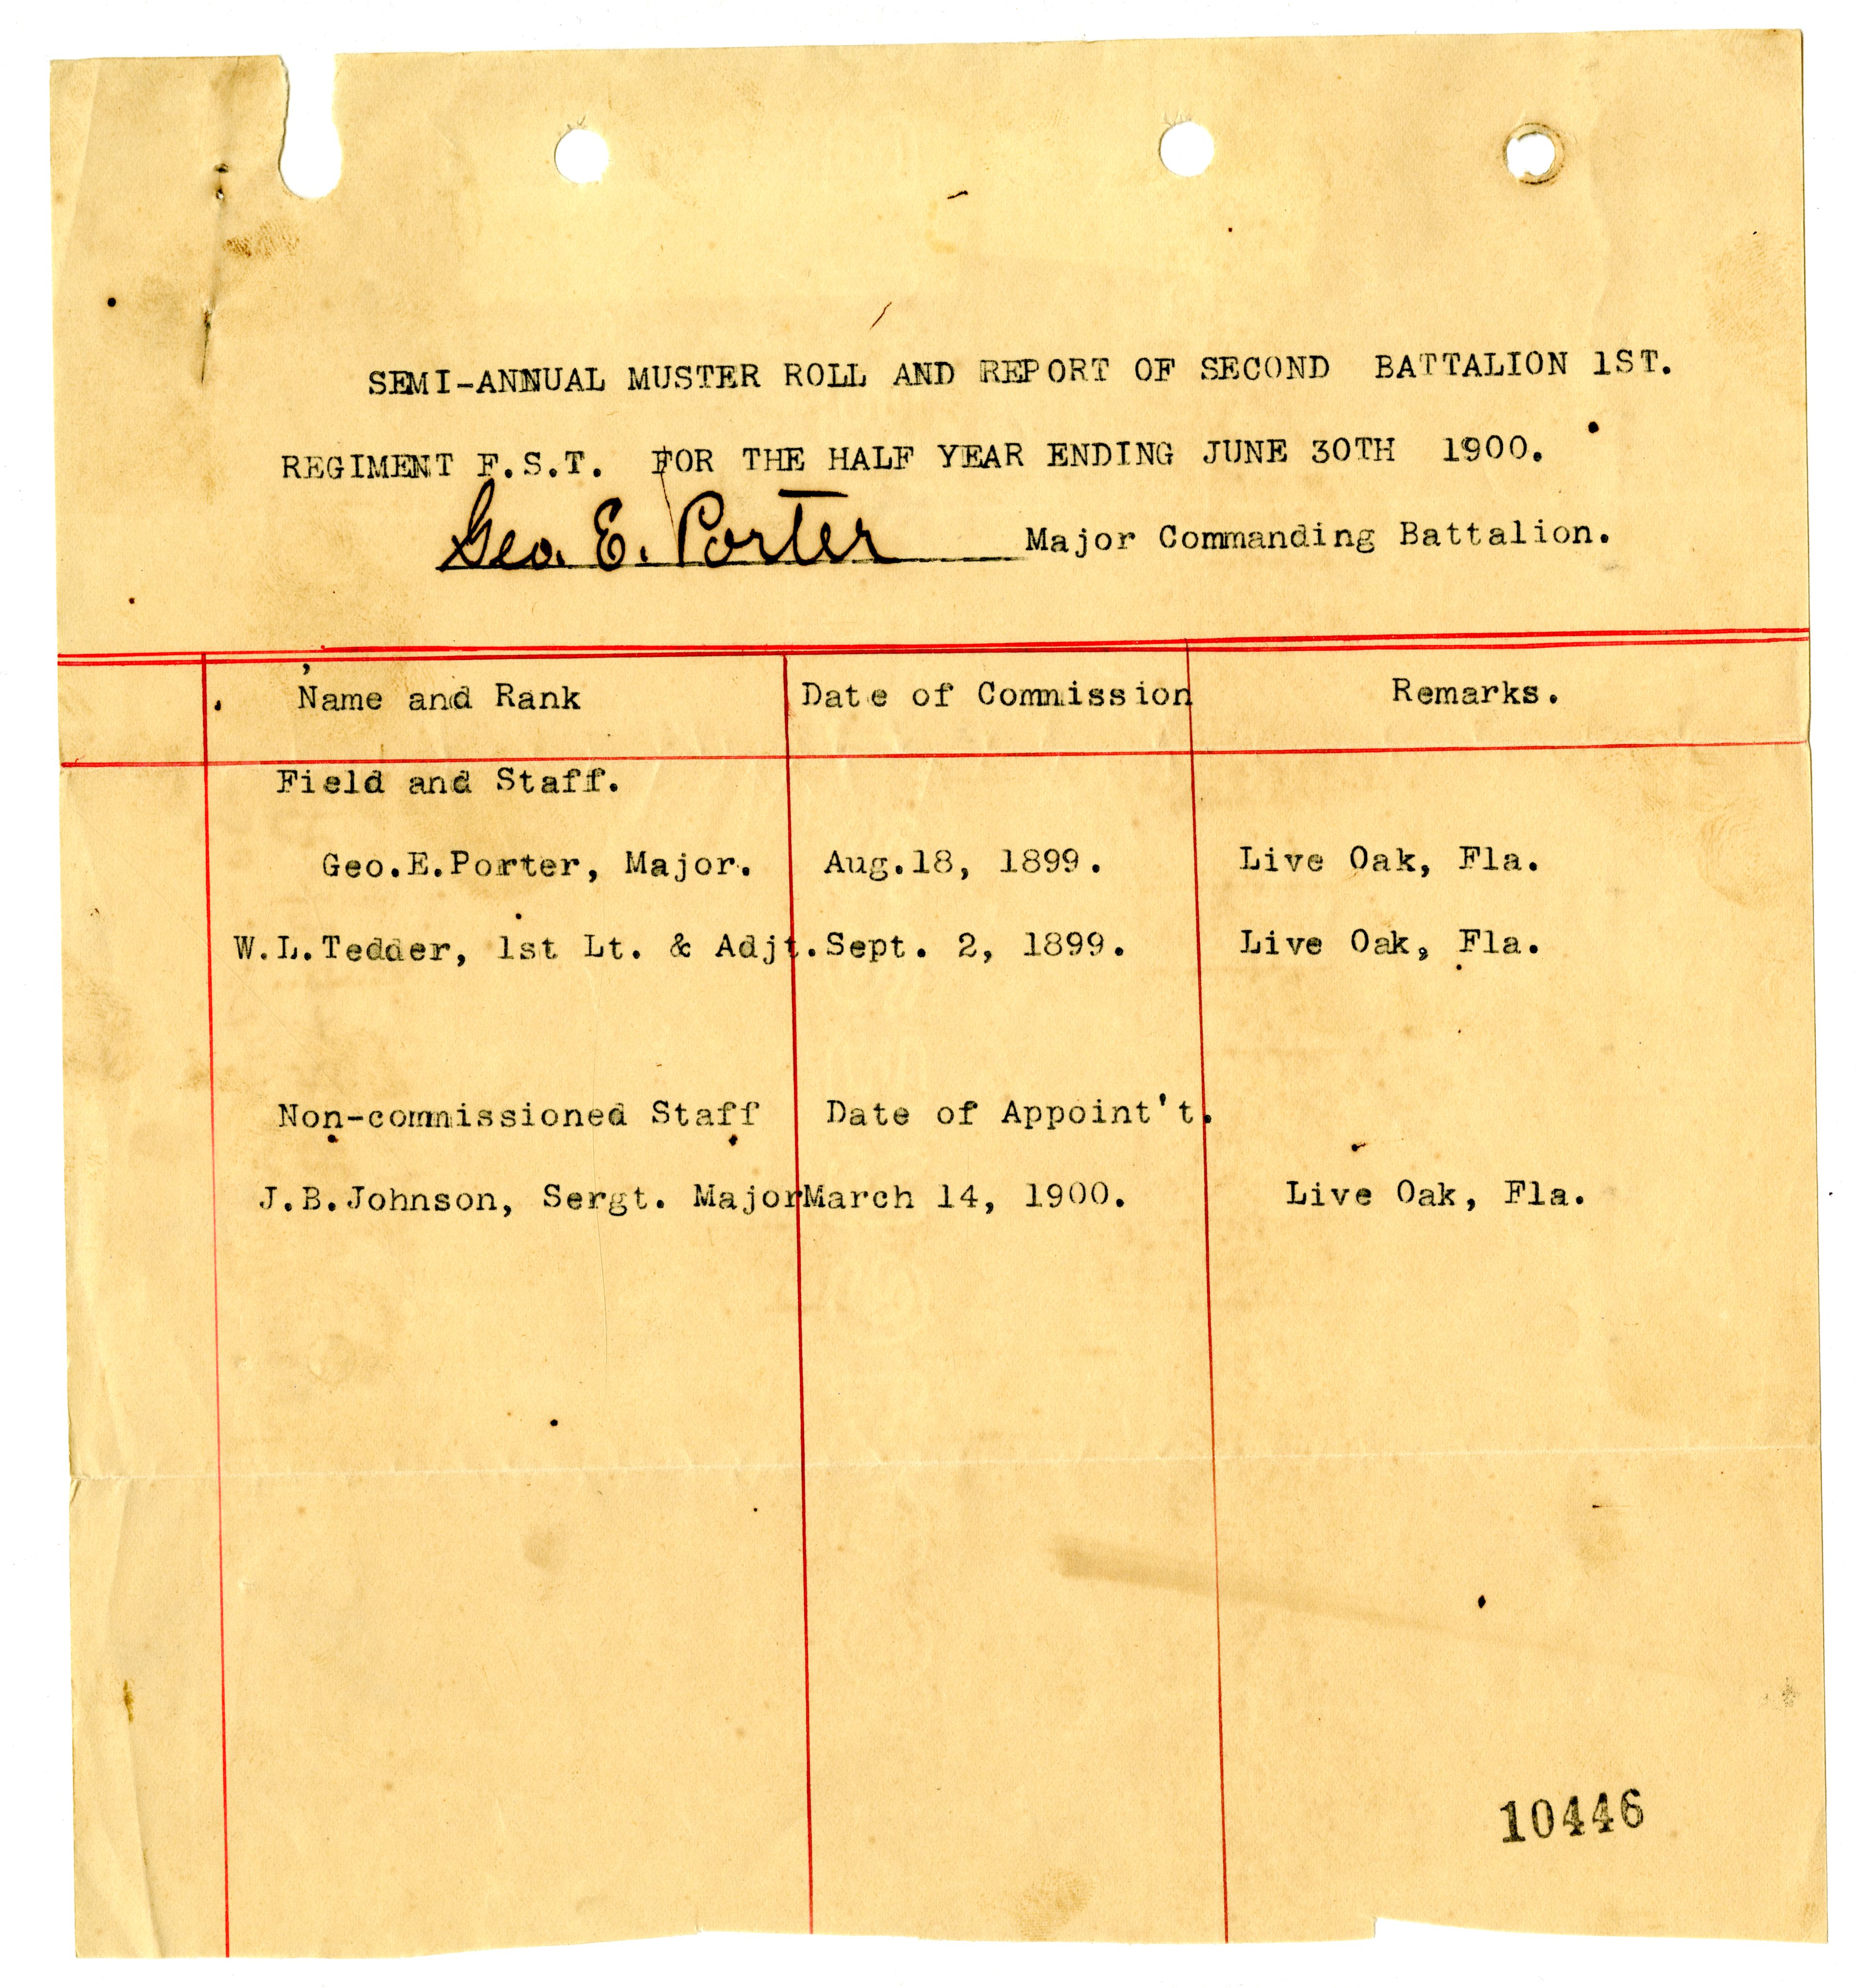 SEMI-ANNUAL MUSTER ROLL AND REPORT OF SECOND BATTALION 1ST.
REGIMENT F.S.T. FOR THE HALF YEAR ENDING JUNE 30TH 1900.
Geo. E. Porter Major Commanding Battalion.
Name and Rank Date of Commission Remarks.
Field and Staff.
Geo.E.Porter, Major. Aug.18, 1899. Live Oak, Fla.
W.L.Tedder, 1st Lt. & Adjt. Sept. 2, 1899. Live Oak, Fla.
Non-commissioned Staff Date of Appoint't.
J.B.Johnson, Sergt. Major March 14, 1900. Live Oak, Fla.
10446